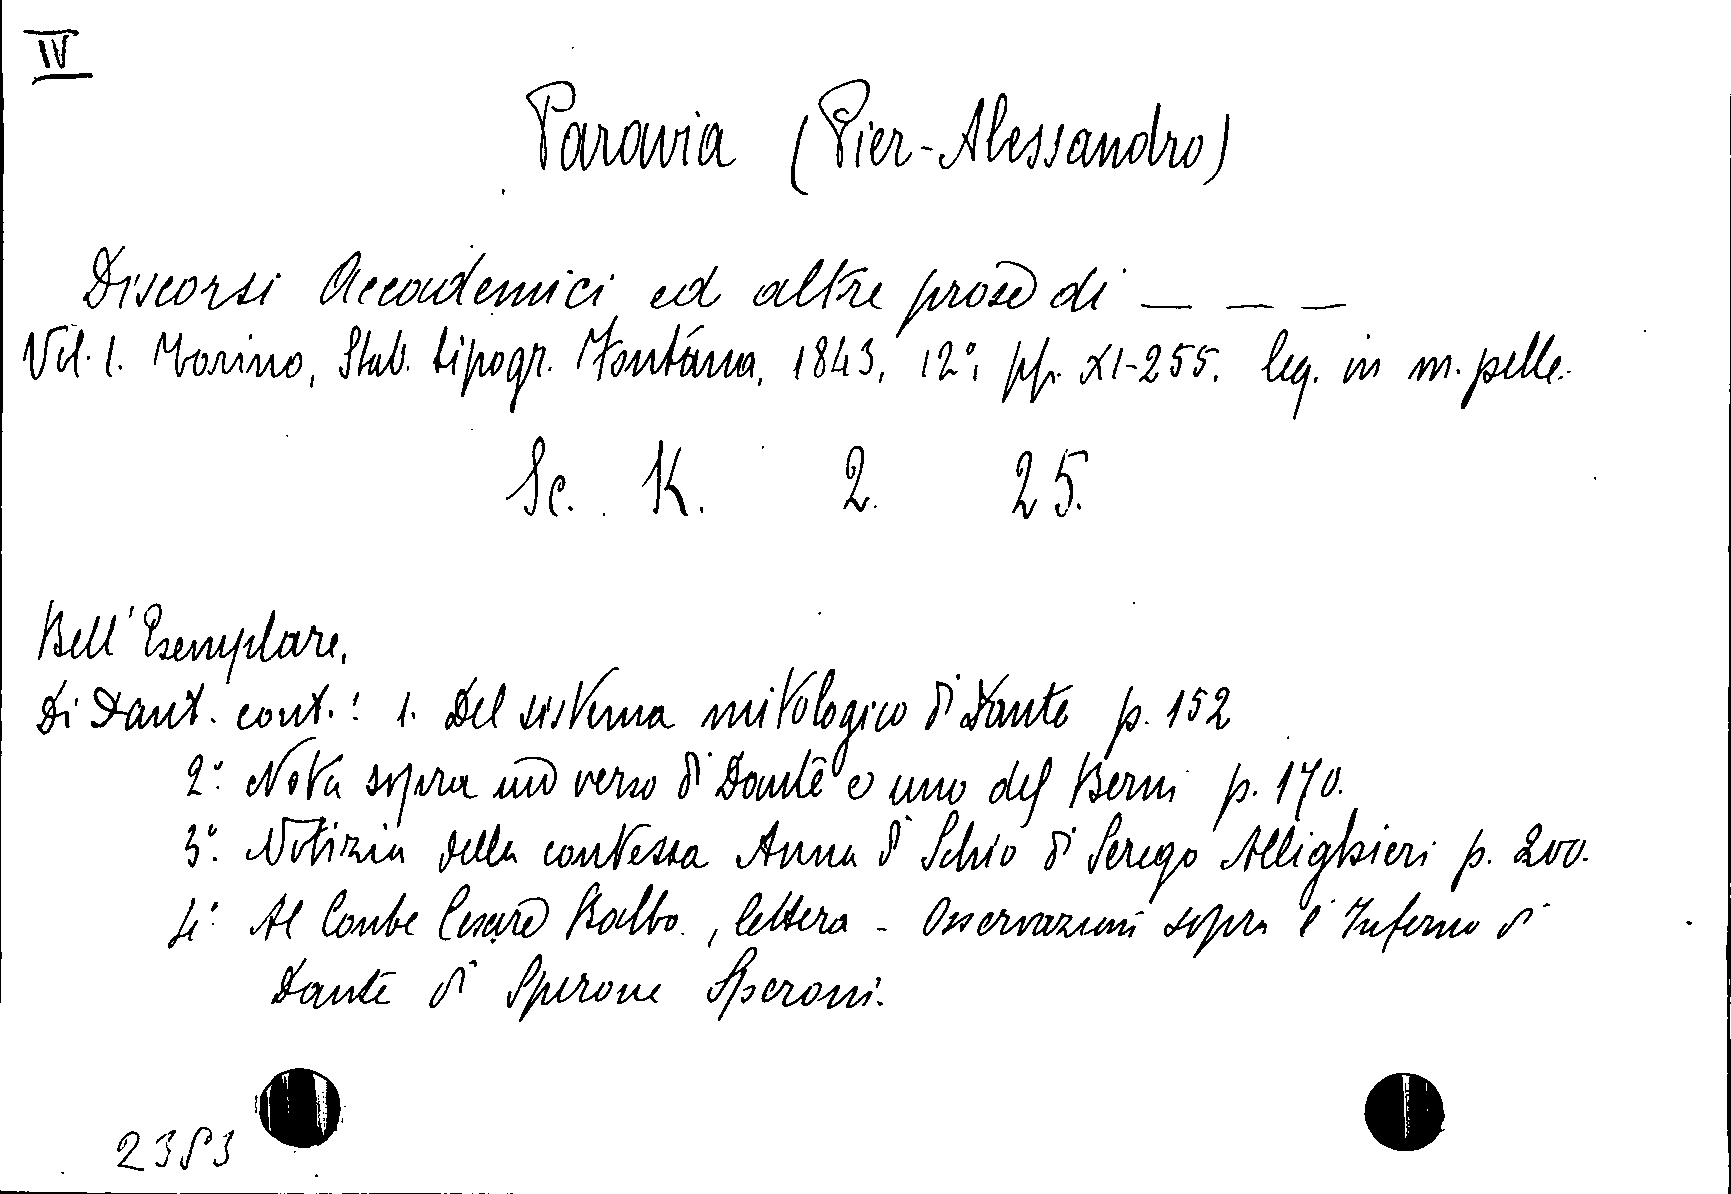 IV
Paravia (Pier-Alessandro)
Discorsi Accademici ed altre prose di _ _ _
Vol. 1. Torino, Stab. tipogr. Fontana, 1843, 12°, pp. XI-255. leg. in m. pelle.
Sc. K. 2. 25.
Bell'Esemplare.
Di Dant. cont.: 1. Del sistema mitologico di Dante p. 152
2° Nota sopra un verso di Dante e uno del Berni p. 170.
3° Notizia della contessa Anna di Schio di Serego Allighieri p. 200.
4° Al Conte Cesare Balbo, lettera - Osservazioni sopra l'Inferno di
Dante di Sperone Speroni.
2383